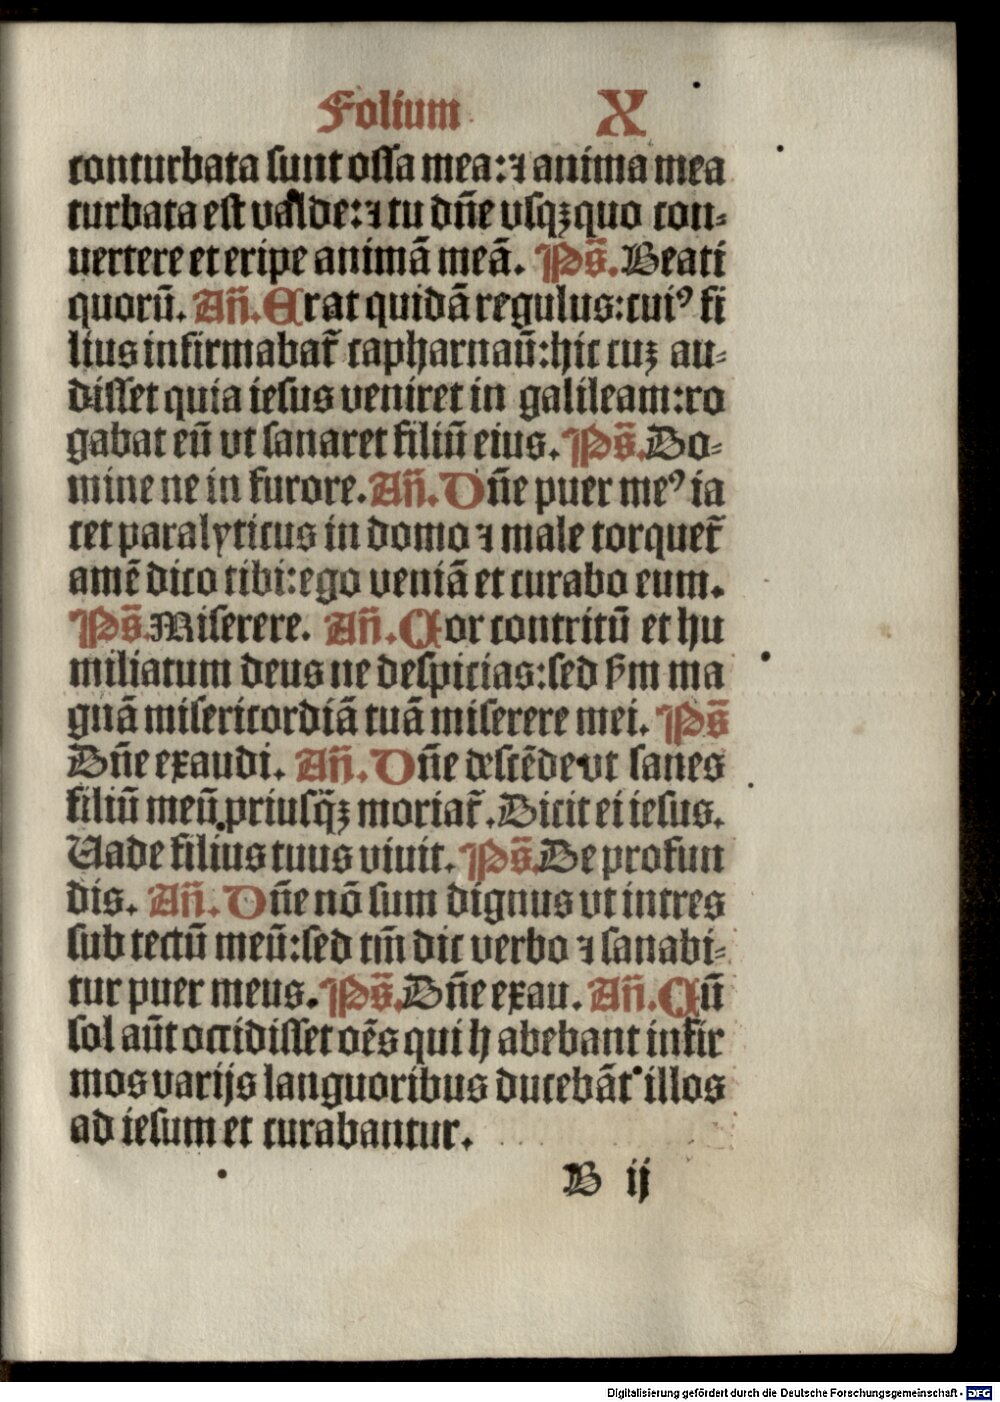 Folium X
conturbata sunt ossa mea:⁊ anima mea
turbata est valde:⁊ tu dñe vsqꝫquo con-
uertere et eripe animā meā. Ps̄. Beati
quorū. Añ. Erat quidā regulus:cuiꝰ fi
lius infirmabat̄ capharnaū:hic cuꝫ au-
disset quia iesus veniret in galileam:ro
gabat eū vt sanaret filiū eius. Ps̄. Do-
mine ne in furore. Añ. Dñe puer meꝰ ia
cet paralyticus in domo ⁊ male torquet̄
amē dico tibi:ego veniā et curabo eum.
Ps̄. Miserere. Añ. Cor contritū et hu
miliatum deus ne despicias:sed ẜm ma
gnā misericordiā tuā miserere mei. Ps̄
Dñe exaudi. Añ. Dñe descēde vt sanes
filiū meū priusq̄ꝫ moriat̄. Dicit ei iesus.
Uade filius tuus viuit. Ps̄. De profun
dis. Añ. Dñe nō sum dignus vt intres
sub tectū meū:sed tm̄ dic verbo ⁊ sanabi-
tur puer meus. Ps̄. Dñe exau. Añ. Cū
sol aūt occidisset oēs qui habebant infir
mos varijs languoribus ducebāt illos
ad iesum et curabantur.
B ij
Digitalisierung gefördert durch die Deutsche Forschungsgemeinschaft - DFG